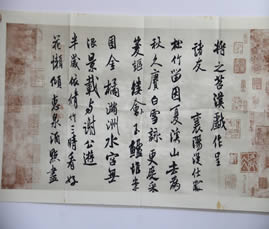 將之苕溪戲作呈
諸友
襄陽漫仕黻
松竹留因夏溪山去為
秋久賡白雪詠更度采
菱謳縷會玉鱸堆案
團金橘滿洲水宮無
限景載與謝公遊
半歲依修竹三時看好
花懶傾惠泉酒點盡